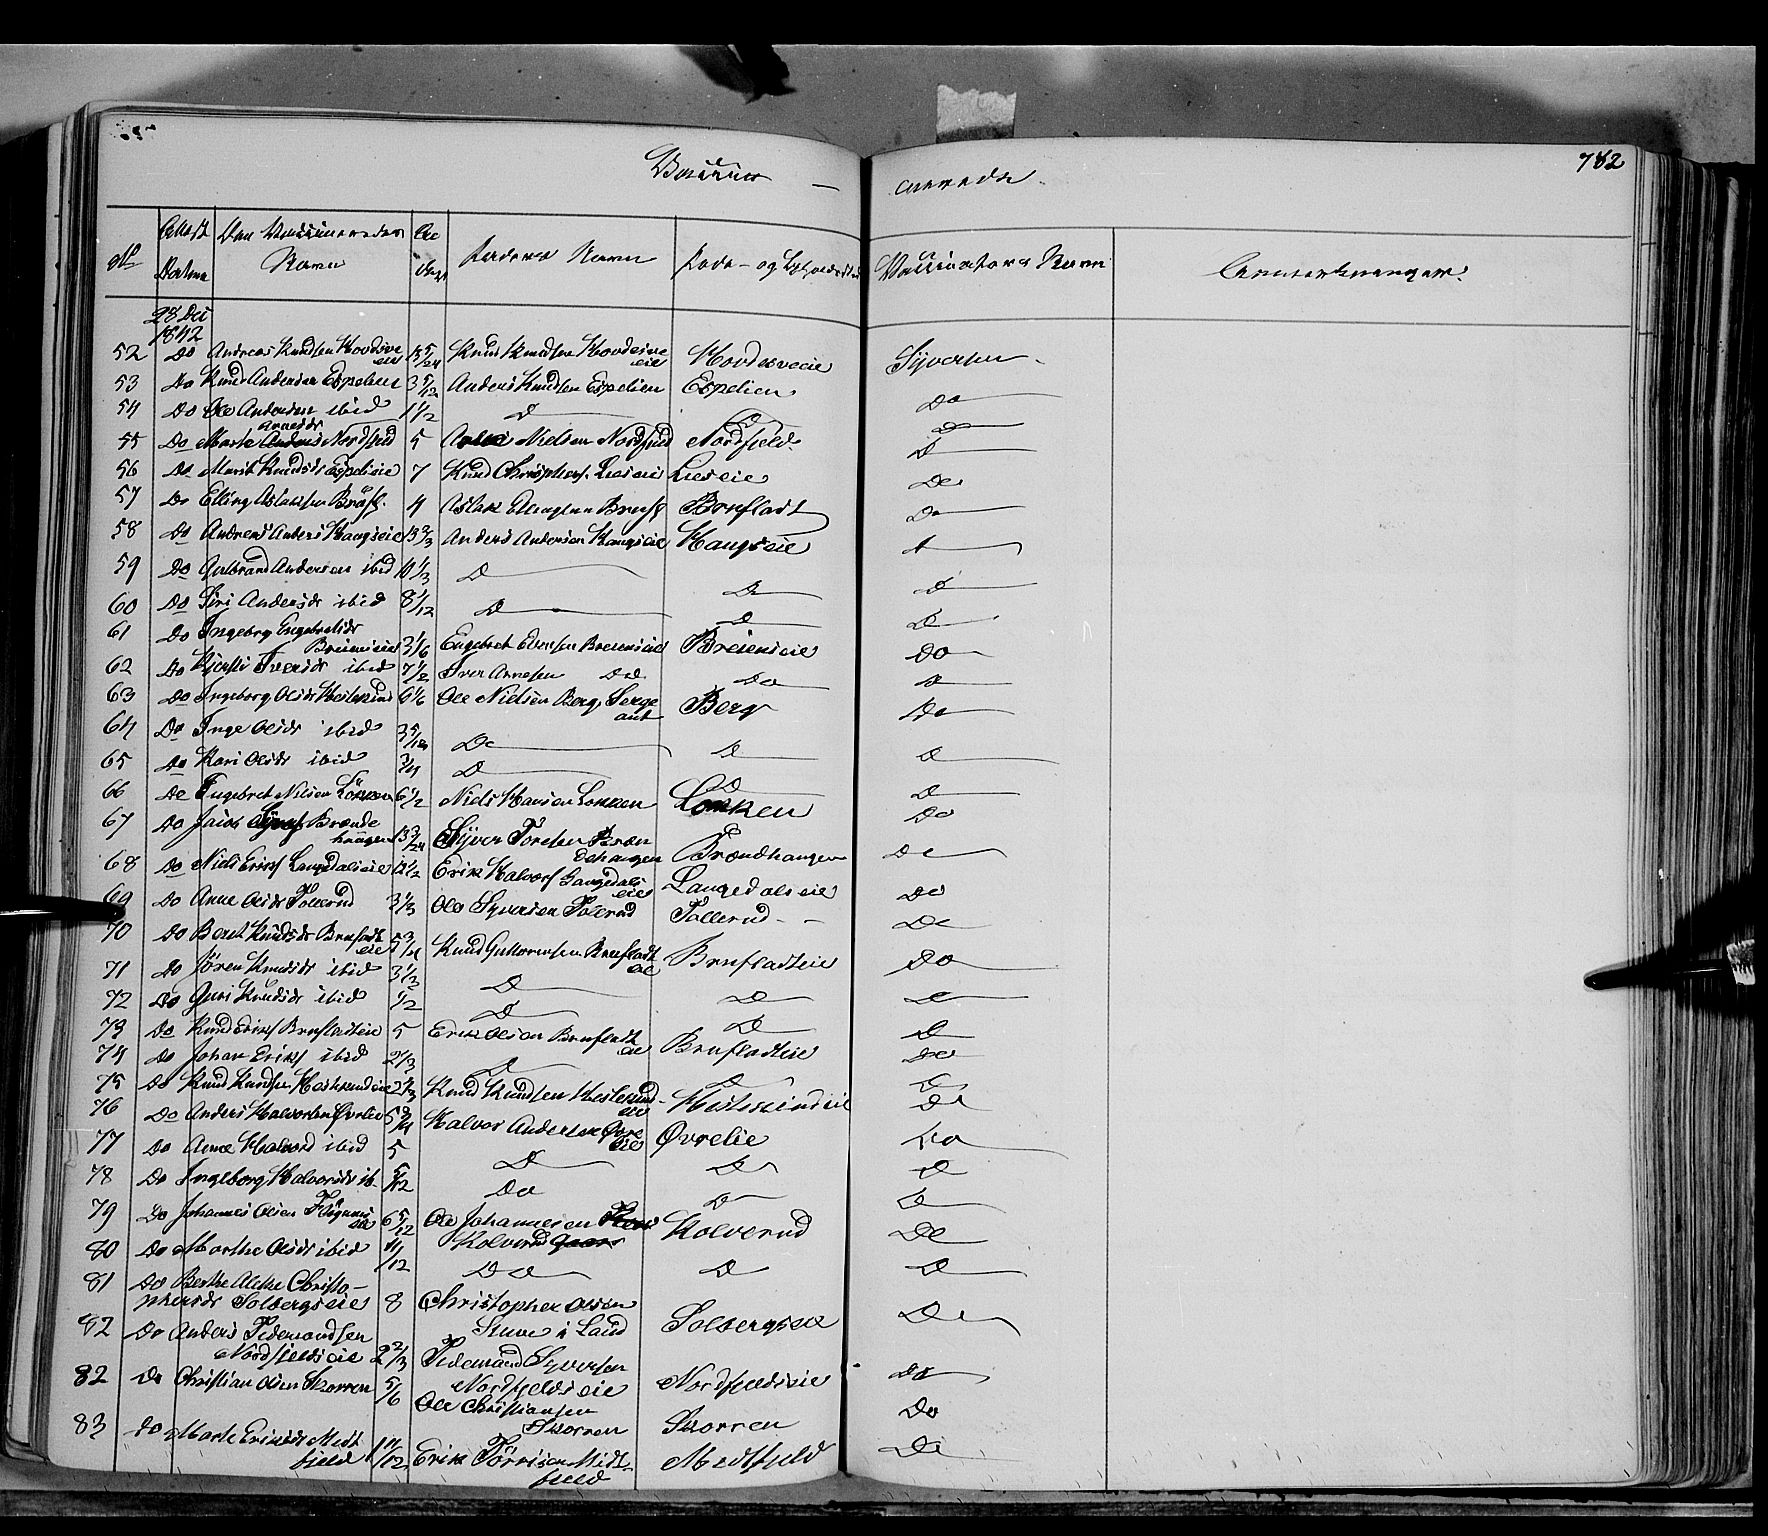 Vaccine — nerede.
782
No Attest Datum Den Vaccineredes Navn Alder Faders Navn Føde- og Opholdssted Vaccinateurs Navn Anmærkninger.
28 Dec 1842
52 Do Andreas Knudsen Hovdsveeie 13 5/24 Knud Knudsen Hovdesveeie Hovdesveeie Syversen
53 Do Knud Andersen Espelien 3 5/12 Anders Knudsen Espelien Espelien Do
54 Do Ole Andersen ibid 1 1/2 D D Do
55 Do Marte Arnesdr Nordfjeld 5 Nielsen Nordfjeld Nordfjeld D
56 Do Marit Knudsdr Espelieie 7 Knud Christophers. Lieseie Lieseie Do
57 Do Elling Aslaksen Brufl. 4 Aslak Ellingsen Brufl Brufladt Do
58 Do Andreas Anders Haugseie 13 2/3 Anders Andersen Haugseie Haugseie D
59 Do Gulbrand Andersen ibid 10 1/3 D D D
60 Do Siri Andersdr ibid 8 1/12 D D D
61 Do Ingeborg Engebretsdr Breieneie 3 1/6 Engebret Evensen Breieneie Breieneie Do
62 Do Kjersti Iversdr ibid 7 1/2 Iver Arnesen Do Do D
63 Do Ingeborg Olsdr Hestekind 6 1/6 Ole Nielsen Berg Sergeant Berg Do
64 Do Inge Olsdr ibid 3 5/12 Do D D
65 Do Kari Olsdr ibid 3/4 D D D
66 Do Engebret Nilsen Løkken 6 1/2 Niels Hansen Løkken Løkken Do
67 Do Jacob Syvers Brændehaugen 13 3/24 Syver Toresen Brændehaugen Brændhaugen Do
68 Do Niels Eriks Langedalseie 12 1/2 Erik Halvors Langedalseie Langedalseie Do
69 Do Anne Olsdr Tollerud 3 1/3 Ole Syversen Tollerud Tollerud Do
70 Do Berit Knudsdr Brufladteie 5 3/4 Knud Guttormsen Brufladteie Brufladteie Do
71 Do Jøren Knudsdr ibid 3 1/3 D D D
72 Do Guri Knudsdr ibid 1/2 D D D
73 Do Knud Eriks Brufladteie 5 Erik Olsen Brufladteie Brufladteie Do
74 Do Johan Eriks ibid 2/3 D D D
75 Do Knud Knudsen Hestekindeie 2 2/3 Knud Knudsen Hestekindeie Hestekindeie Do
76 Do Anders Halvorsen Øvrelie 5 3/4 Halvor Andersen Øvrelie Øvrelie Do
77 Do Anne Halvorsd ibid 5 D D D
78 Do Ingeborg Halvorsdr ib. 5/12 Do D D
79 Do Johannes Olsen 6 5/12 Ole Johannesen Kolverud Kolverud De
80 Do Marthe Olsdr ibid 11/12 Do D D
81 Do Berthe Alethe Christophersdr Solbergseie 8 Christopher Olsen Stuve i Land Solbergseie De
82 Do Anders Tidemandsen Nordfjeldseie 2 2/3 Tidemand Syversen Nordfjeldseie Nordfjeldseie Do
82 Do Christian Olsen Skorren 5/6 Ole Christiansen Skorren Skorren Do
83 Do Marte Eriksdr Midtfjeld 1 11/12 Erik Tørrisen Midtfjeld Medtfjeld De